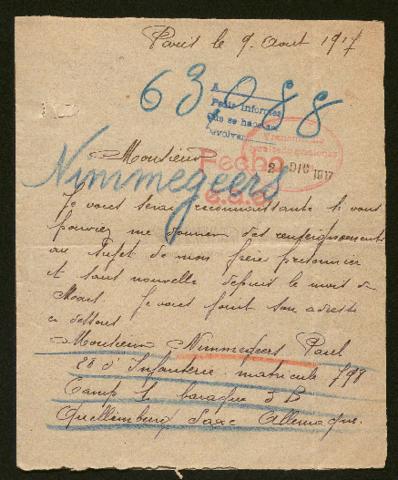 Paris le 9. Aout 1917
63088
A
Pedir Informes
que se hace
devolver
2 DIC 1917
Monsieur
Fecho
Nimmegeers
e.a.e.
Je vous serai reconnaissante si vous
pouviez me donner des renseignements
au sujet de mon frère prisonnier
et sant nouvelle depuis le mois de
Mars. Je vous joint son adresse
ci dessous
Monsieur Nimmegeers Paul
28 d'Infanterie. matricule 798
Camp 1 baraque 5 B
Quellimburg Saxe Allemagne.